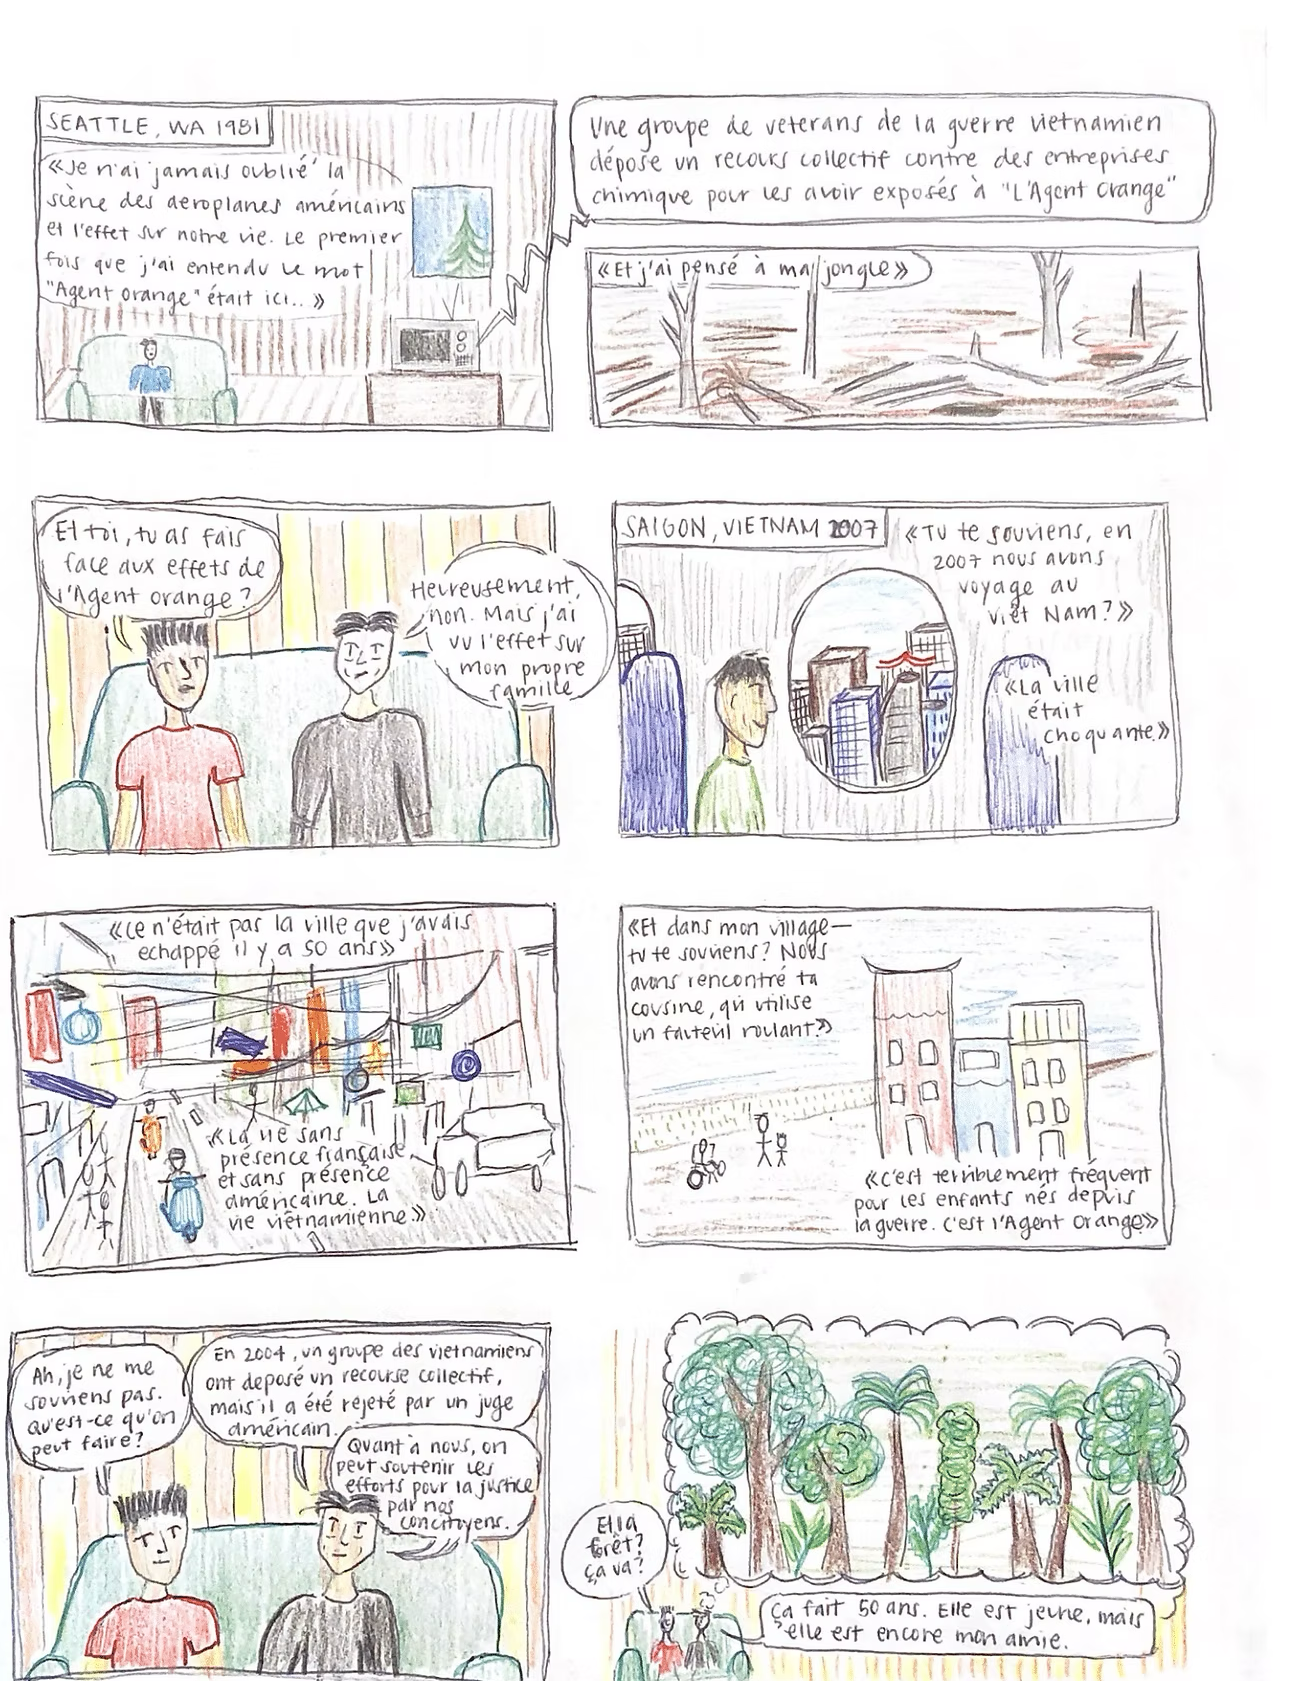 SEATTLE, WA 1981
«Je n'ai jamais oublié la
scène des aeroplanes américains
et l'effet sur notre vie. Le premier
fois que j'ai entendu le mot
"Agent Orange" était ici.. »
Une groupe de veterans de la guerre vietnamien
dépose un recours collectif contre des entreprises
chimique pour les avoir exposés à "L'Agent Orange"
«Et j'ai pensé à ma jongle»
Et toi, tu as fais
face aux effets de
l'Agent Orange?
Heureusement,
non. Mais j'ai
vu l'effet sur
mon propre
famille
SAIGON, VIETNAM 2007
«Tu te souviens, en
2007 nous avons
voyage au
Việt Nam?»
«La ville
était
choquante.»
«Ce n'était pas la ville que j'avais
echappé il y a 50 ans»
«La vie sans
présence française
et sans présence
américaine. La
vie viêtnamienne.»
«Et dans mon village—
tu te souviens? Nous
avons rencontré ta
cousine, qui utilise
un fauteuil roulant.»
«C'est terriblement fréquent
pour les enfants nés depuis
la guerre. C'est l'Agent Orange»
Ah, je ne me
souviens pas.
Qu'est-ce qu'on
peut faire?
En 2004, un groupe des vietnamiens
ont deposé un recourse collectif,
mais il a été rejeté par un juge
américain.
Quant à nous, on
peut soutenir les
efforts pour la justice
par nos
concitoyens.
Et la
forêt?
Ça va?
Ça fait 50 ans. Elle est jeune, mais
elle est encore mon amie.